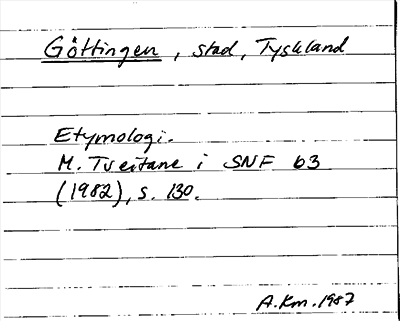 Göttingen, stad, Tyskland
Etymologi.
M. Tveitane i SNF 63
(1982), s. 130.
A.Km. 1987